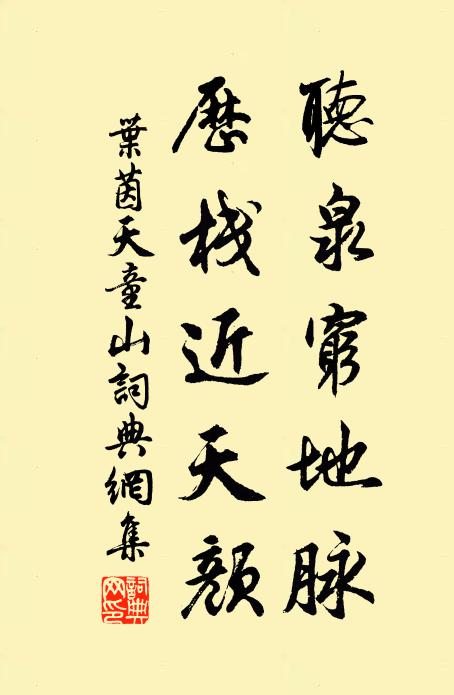 聽泉窮地脉
歷棧近天顏
葉茵天童山詞典網集
詞典網印